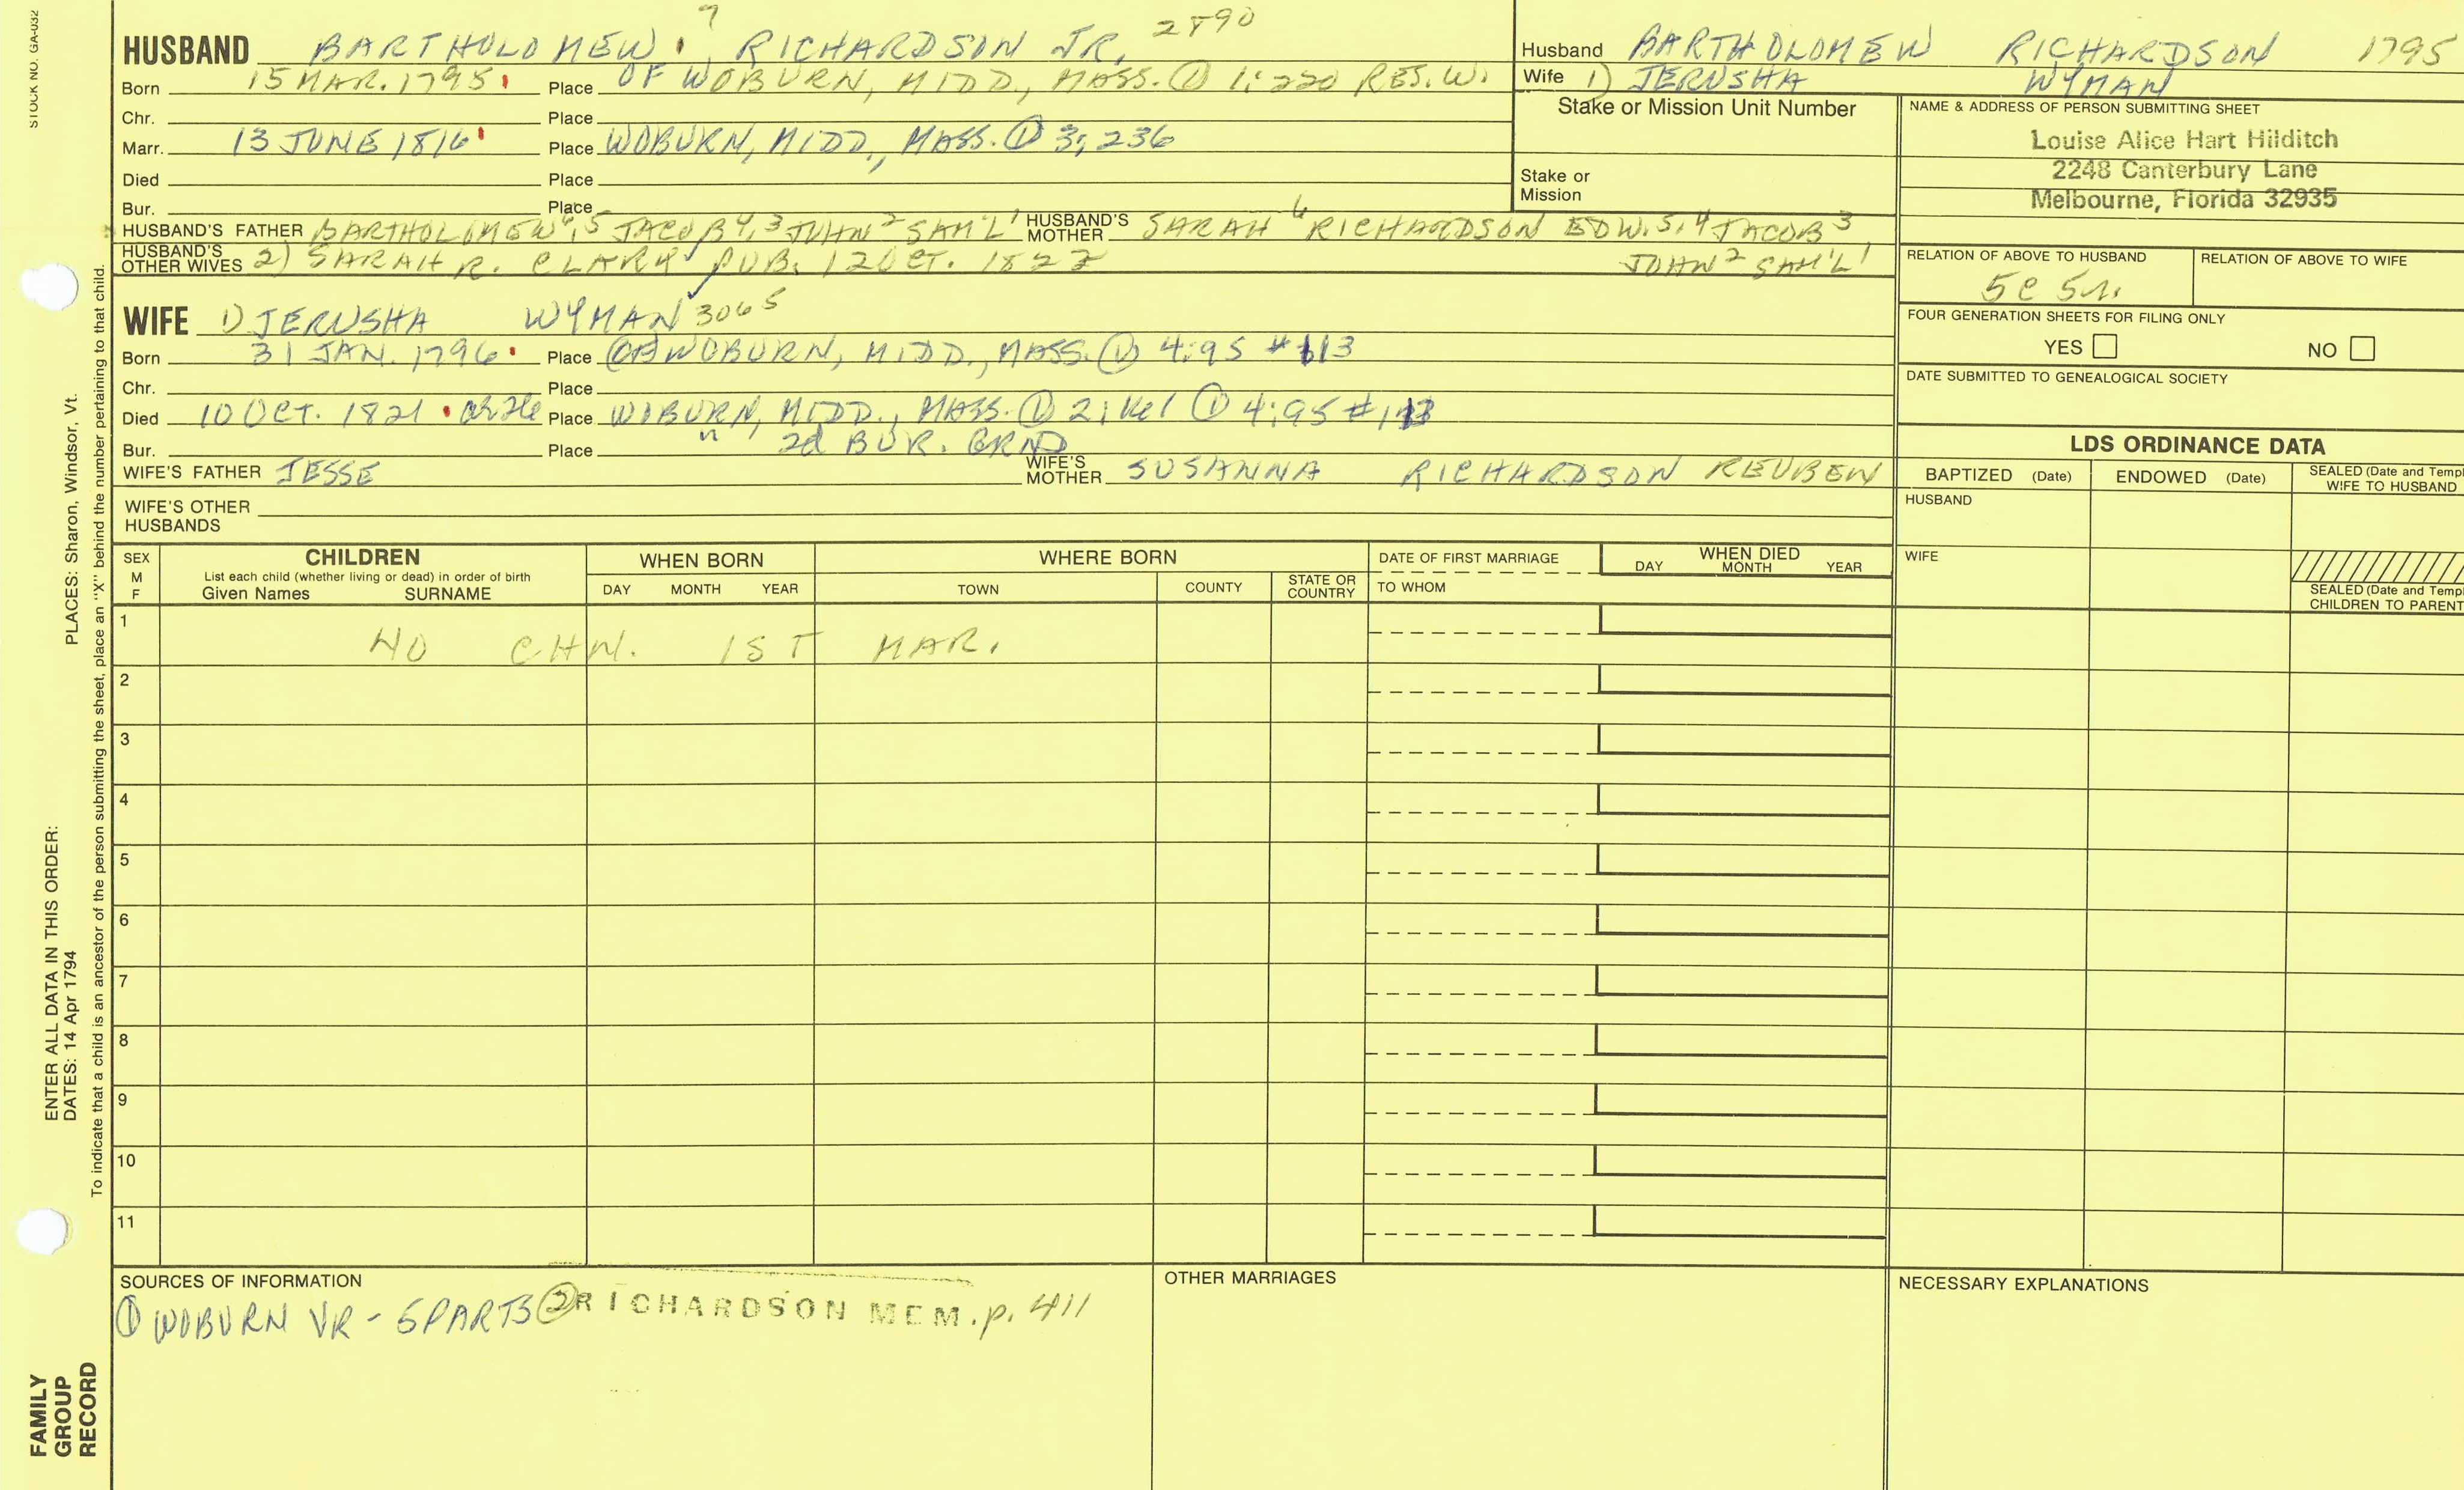 STOCK NO. GA-032
7
HUSBAND BARTHOLOMEW. RICHARDSON JR. 2890
Born 15 MAR. 1795 Place OF WOBURN, MIDD., MASS. ① 1:220 RES. W.
Chr. Place
Marr. 13 JUNE 1816 Place WOBURN, MIDD., MASS. ① 3; 236
Died Place
Bur. Place
HUSBAND'S FATHER BARTHOLOMEW 6, 5 JACOB 4, 3 JOHN 2 SAM'L 1 HUSBAND'S MOTHER SARAH 6 RICHARDSON EDW. 5, 4 JACOB 3
HUSBAND'S OTHER WIVES 2) SARAH R. CLARK PUB. 12 OCT. 1822 JOHN 2 SAM'L 1
WIFE 1) JERUSHA WYMAN 3065
Born 31 JAN. 1796 Place OF WOBURN, MIDD., MASS. ① 4:95 #113
Chr. Place
Died 10 OCT. 1821 Place WOBURN, MIDD., MASS. ① 2; ① 4:95 #113
Bur. Place " 2d BUR. GRND
WIFE'S FATHER JESSE WIFE'S MOTHER SUSANNA RICHARDSON REUBEN
WIFE'S OTHER HUSBANDS
Husband BARTHOLOMEW RICHARDSON 1795
Wife 1) JERUSHA WYMAN
Stake or Mission Unit Number
Stake or Mission
NAME & ADDRESS OF PERSON SUBMITTING SHEET
Louise Alice Hart Hilditch
2248 Canterbury Lane
Melbourne, Florida 32935
RELATION OF ABOVE TO HUSBAND RELATION OF ABOVE TO WIFE
5C 5r.
FOUR GENERATION SHEETS FOR FILING ONLY
YES NO
DATE SUBMITTED TO GENEALOGICAL SOCIETY
LDS ORDINANCE DATA
BAPTIZED (Date) ENDOWED (Date) SEALED (Date and Templ
WIFE TO HUSBAND
HUSBAND
WIFE
SEALED (Date and Templ
CHILDREN TO PARENT
SEX
M
F
CHILDREN
List each child (whether living or dead) in order of birth
Given Names SURNAME
WHEN BORN
DAY MONTH YEAR
WHERE BORN
TOWN COUNTY STATE OR COUNTRY
DATE OF FIRST MARRIAGE
TO WHOM
WHEN DIED
DAY MONTH YEAR
1 NO CHN. 1ST MAR.
2
3
4
5
6
7
8
9
10
11
SOURCES OF INFORMATION
① WOBURN VR - 5 PARTS ② RICHARDSON MEM. p. 411
OTHER MARRIAGES
NECESSARY EXPLANATIONS
ENTER ALL DATA IN THIS ORDER:
DATES: 14 Apr 1794
PLACES: Sharon, Windsor, Vt.
To indicate that a child is an ancestor of the person submitting the sheet, place an "X" behind the number pertaining to that child.
FAMILY
GROUP
RECORD